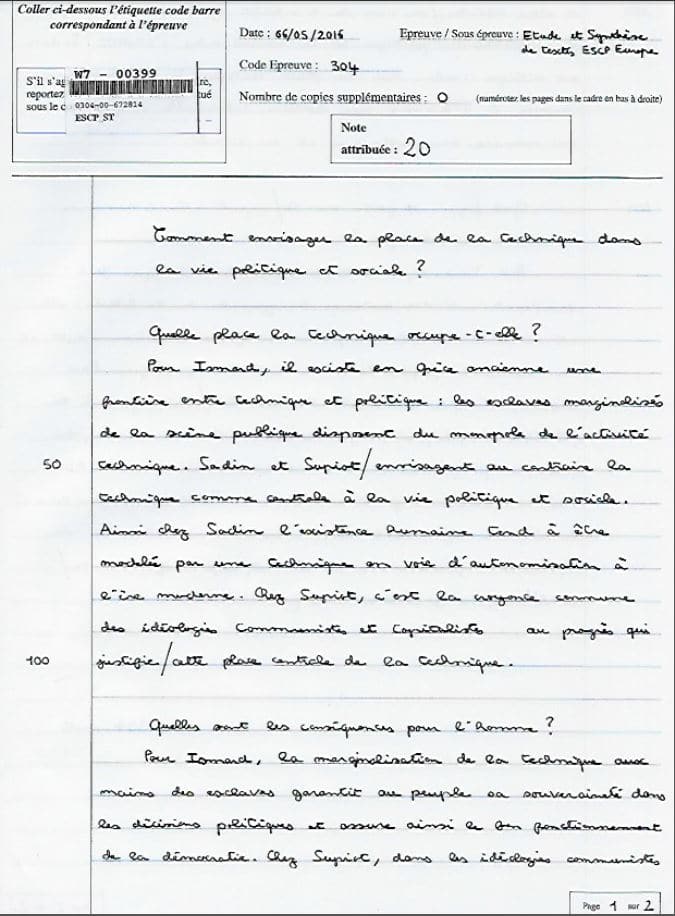 Coller ci-dessous l'étiquette code barre
correspondant à l'épreuve
Date : 66/05/2016
Epreuve / Sous épreuve : Etude et Synthèse
de textes ESCP Europe
Code Epreuve : 304
S'il s'ag
re,
reportez
tué
sous le c
W7 - 00399
0304-00-672814
ESCP_ST
Nombre de copies supplémentaires : 0 (numérotez les pages dans le cadre en bas à droite)
Note
attribuée : 20
Comment envisager la place de la technique dans
la vie politique et sociale ?
Quelle place la technique occupe-t-elle ?
Pour Ismard, il existe en Grèce ancienne une
frontière entre technique et politique : les esclaves marginalisés
de la scène publique disposent du monopole de l'activité
50 technique. Sadin et Supiot/envisagent au contraire la
technique comme centrale à la vie politique et sociale.
Ainsi chez Sadin l'existence humaine tend à être
modelée par une technique en voie d'autonomisation à
l'ère moderne. Chez Supiot, c'est la croyance commune
des idéologies Communistes et Capitalistes au progrès qui
100 justifie/cette place centrale de la technique.
Quelles sont les conséquences pour l'homme ?
Pour Ismard, la marginalisation de la technique aux
mains des esclaves garantit au peuple sa souveraineté dans
les décisions politiques et assure ainsi le bon fonctionnement
de la démocratie. Chez Supiot, dans les idéologies communistes
Page 1 sur 2